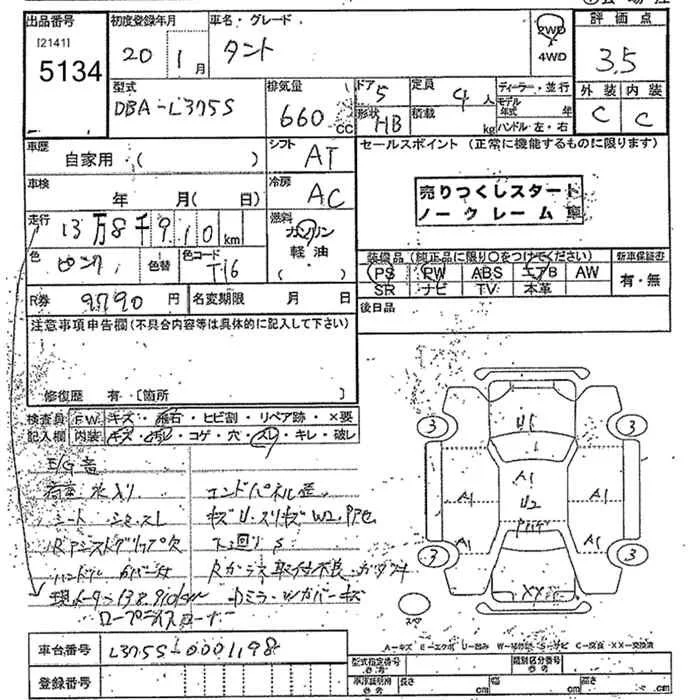 出品番号
[2141]
5134
初度登録年月
20年 1月
車名・グレード
タント
2WD
4WD
評価点
3.5
外装 内装
C C
型式
DBA-L375S
排気量
660 cc
ドア 5
形状 HB
定員 4人
積載 kg
ディーラー・並行
モデル年式 年
ハンドル 左・右
車歴
自家用 ( )
シフト
AT
セールスポイント (正常に機能するものに限ります)
車検
年 月(日)
冷房
AC
売りつくしスタート
ノークレーム車
走行
13万8千910 km
燃料
ガソリン
軽油
( )
色
ピンク
色替
色コード
T16
装備品 (純正品に限り○をつけてください)
新車保証書
PS PW ABS エアB AW
SR ナビ TV 本革
有・無
R券
9790 円
名変期限 月 日
後日品
注意事項申告欄 (不具合内容等は具体的に記入して下さい)
修復歴 有 [箇所 ]
検査員記入欄
FW キズ・飛石・ヒビ割・リペア跡・×要
内装 キズ・汚レ・コゲ・穴・スレ・キレ・破レ
E/G音
荷室 水入り
エンドパネル歪
シート シミ・スレ
下廻り S
Rアシストグリップ欠
Rガラス取付不良・ガタツキ
ハンドル カバー
現メーター138,910km
ロープライスコーナー
3 3
3 3
U1
A1
U2
A1 A1
A1 A1
XX
スペア
A-キズ E-エクボ U-凹み W-補修跡 S-サビ C-腐食 XX-交換済
車台番号
L375S-0001198
登録番号
型式指定番号
参考
類別区分番号
参考
車庫証明用
参考
長さ cm
幅 cm
高さ cm